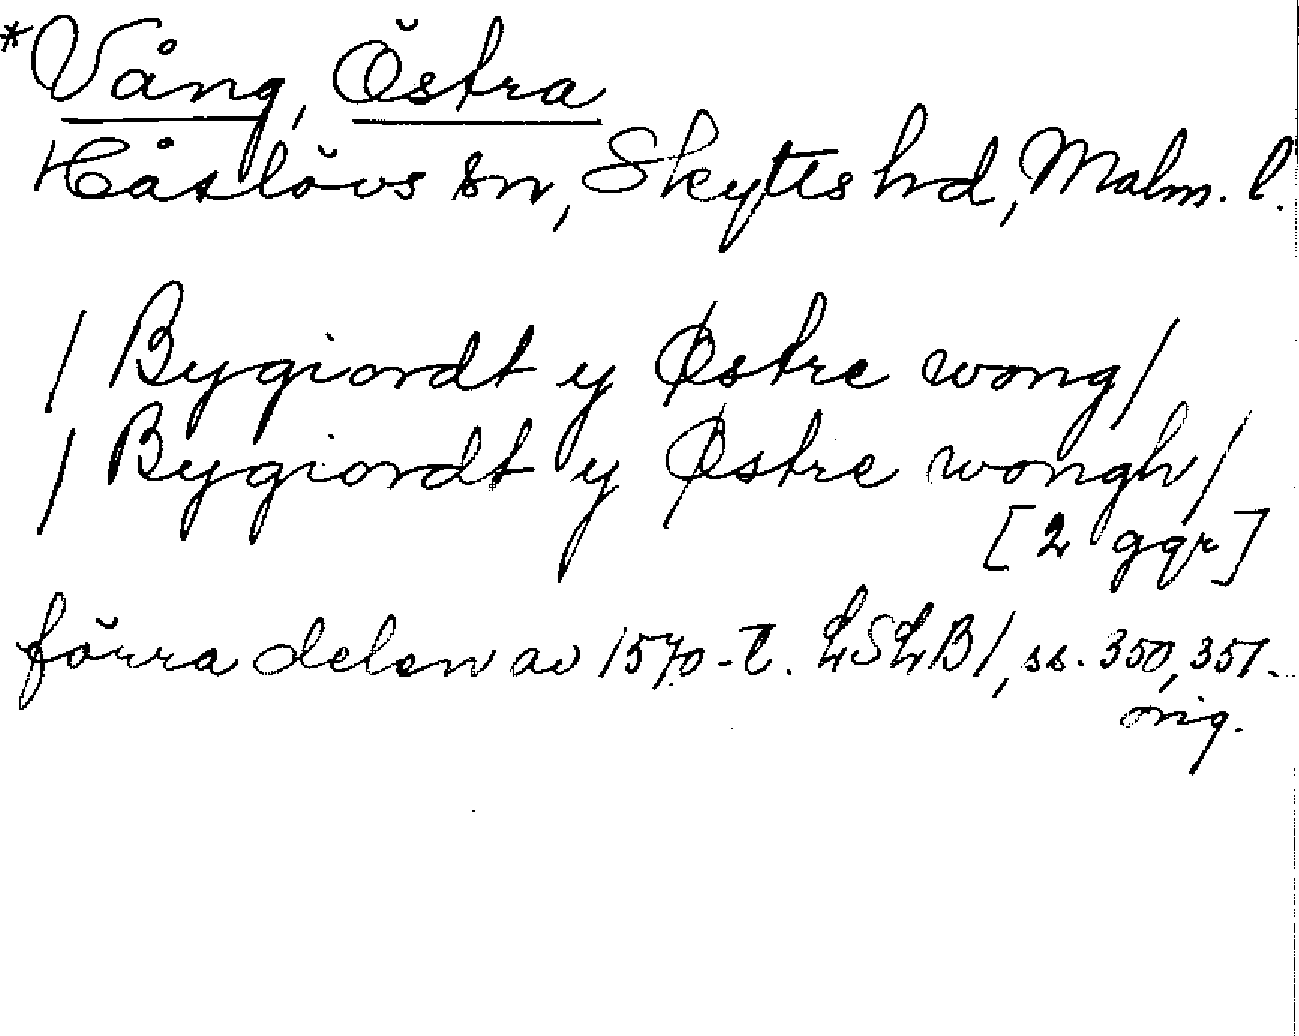 *Vång, Östra
Håslövs sn, Skytts hd, Malm. l.
/ Bygiordt y Østre wong/
/ Bygiordt y Østre wongh/
[2 ggr]
förra delen av 1570-t. LSLB1, ss. 350, 351.
orig.